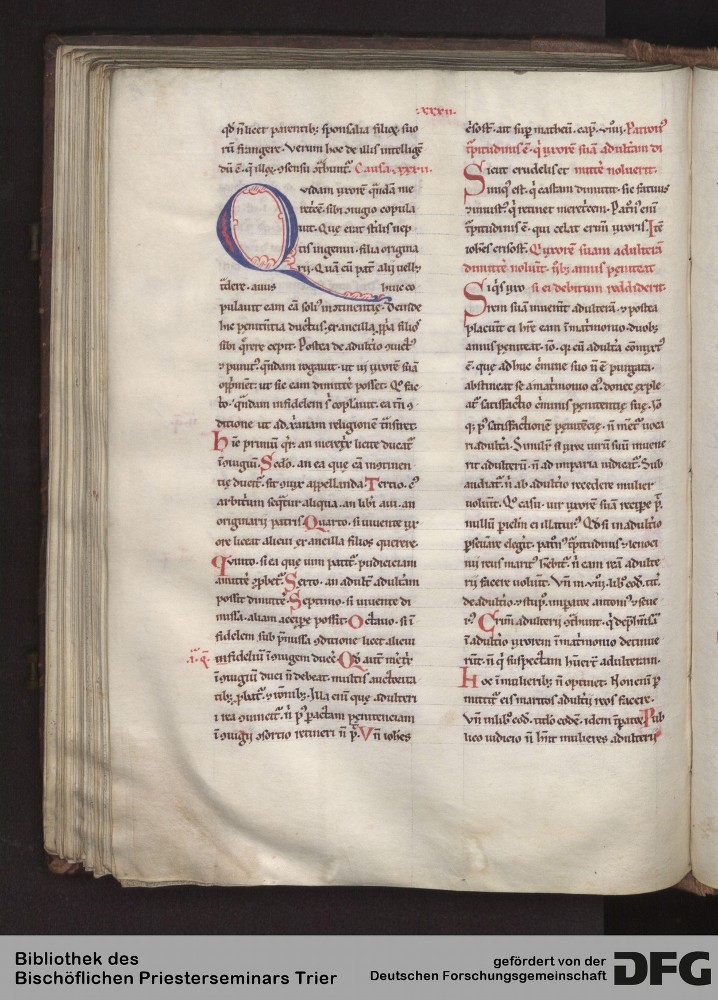 .xxxii.
qd n̄ licet parentibꝫ sponsalia filioꝝ suo
rū frangere. Verum hoc de illis intelligē
dū ē. q̄ illoꝝ ꝯsensu ꝯthunt᷑. Causa .xxxii.
Quidam uxorē n̄ habens me
retricē sibi ꝯiugio copula
uit. Que erat sterilis nep
tis ingenui. filia origina
rij. Quā cū pat᷑ alij uellꝫ
tradere. auus huic co
pulauit eam cā soli᷑ incontinentie. Deinde
hic penitentia ductus. ex ancilla ꝓp̄a filios
sibi q̄rere cepit. Postea de adultio ꝯuictꝰ
⁊ punitꝰ. quendam rogauit. ut ui uxorē suā
opp̄meret. ut sic eam dimittere posset. Qo fac
to. quandam infidelem s̄ copulauit. ea tn̄ ꝯ
ditione ut ad xp̄ianam religionē t̄nsiret.
Hic primū qr̄. an meretrix licite ducat᷑
ī ꝯiugiū. Scdo. an ea que cā incontinen
tie ducit᷑. sit ꝯiux appellanda. Tercio. cꝰ
arbitriū sequt᷑ aliqua. an libi aui. an
originarij patris. Quarto. si uiuente ux
ore liceat alicui ex ancilla filios querere.
Quinto. si ea que uim patit᷑ pudiciciam
amittē ꝓbet᷑. Sexto. an adult᷑ adultam
possit dimittē. Septimo. si uiuente di
missa. aliam accipe possit. Octauo. si ī
fidelem sub p̄missa ꝯditione licet alicui
.i. q̄. infideliū ī ꝯiugem ducē. Qd aut meretrix
ī ꝯiugiū duci n̄ debeat. multis auctorita
tibꝫ ꝓbat᷑. ⁊ rōnibꝫ. Illa enī que adulteri
i rea ꝯuincit᷑. n̄ p̄ pactam penitenciam
ī ꝯiugij ꝯsortio retineri n̄ p̄. Vn̄ iohes
crisost. ait sup matheū. cap. viiij. Patronꝰ
t᷑pitudinis ē. q̄ uxorē suā adultam di
Sicut crudelis et mittē noluerit.
iniqꝰ est. q̄ castam dimittit. sic fatuus
⁊ iniustꝰ. q̄ retinet meretricem. Patnꝰ enī
t᷑pitudinis ē. qui celat crim̄ uxoris. Itē
iohes crisost. Q uxorē suam adulterā
dimittē noluit. tbꝫ annis peniteat
Siqs uxo si ei debitum reddiderit.
rem suam inuenit adulterā. ⁊ postea
placuit ei hr̄e eam ī matrimonio. duobꝫ
annis peniteat. io. qr cū adultera cōiungit᷑
ē. que adhuc crimīe suo n̄ ē purgata.
abstineat se a matrimonio eꝰ. donec exple
at᷑ satisfactio criminis penitentie sue. Io
q. p᷑ satisfactionē penitēcie. n̄ mēt᷑ uoca
ri adultera. Similr̄ si uxor uirū suū inuene
rit adulterū. n̄ ad imparia iudicat᷑. Sub
audiat᷑. n̄ ab adultio recedere mulier
noluit. Qo casu. uir uxorē suā recipe p̄.
nullū p̄iclm̄ ei illatur᷑. Qd si in adultio
p̄seuerare elegit. patronꝰ t᷑pitudinis ⁊ lenoci
nij reus maritꝰ habebit᷑. n̄ eam reā adulte
rij facere uoluit. Vn̄ in viiij. lib. cod. tit.
de adultio. ⁊ stupro. imperatores antoninꝰ ⁊ seue
rꝰ. Crim̄ adulterij ꝯthunt᷑. q̄ dep̄hēsā
ī adultio uxorem ī matrimonio detinue
rūt. n̄ q̄ suspectam hūerē adulteram.
Hoc ī mulieribꝫ n̄ optinet. Non enī p̄
mittit᷑ eis maritos adultij reos facere.
Vn̄ in lib. eod. titlo eodē. idem impator. Pub
lico iudicio n̄ hn̄t mulieres adulterij
Bibliothek des
Bischöflichen Priesterseminars Trier
gefördert von der
Deutschen Forschungsgemeinschaft
DFG